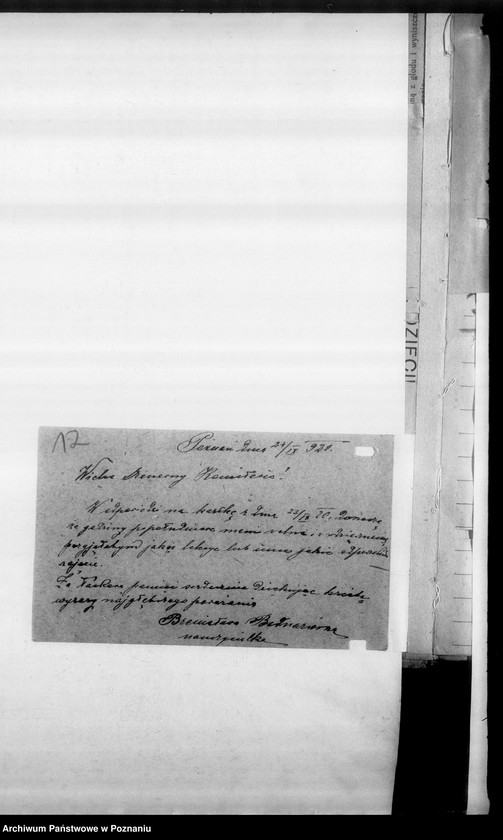 12
Poznań dnia 24/IX 920.
Wielce Szanowny Komitecie!
W odpowiedzi na kartkę z dnia 22/IX donoszę
że godziny popołudniowe mam wolne i
przyjęłabym jakie lekcye lub inne jakie
zajęcie.
Za łaskawą pamięć serdecznie dziękując kreślę
wyrazy najgłębszego poważania
Bronisława Bednarówna
nauczycielka
DZIECI
Archiwum Państwowe w Poznaniu